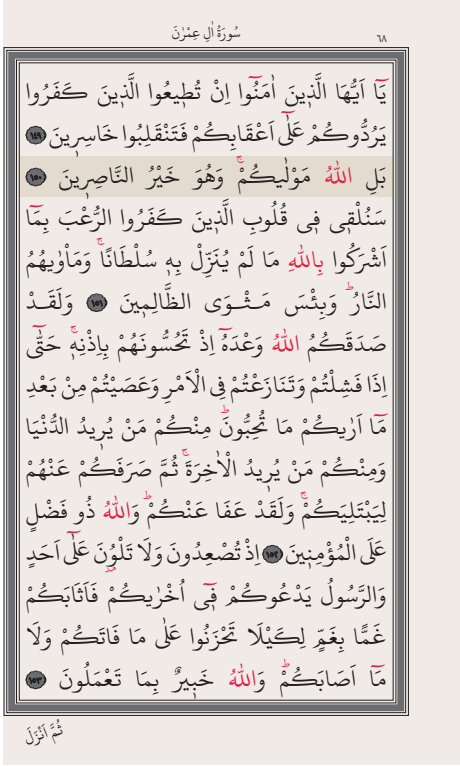 سُورَةُ اٰلِ عِمْرٰنَ ٦٨
يَٓا اَيُّهَا الَّذ۪ينَ اٰمَنُٓوا اِنْ تُط۪يعُوا الَّذ۪ينَ كَفَرُوا
يَرُدُّوكُمْ عَلٰٓى اَعْقَابِكُمْ فَتَنْقَلِبُوا خَاسِر۪ينَ ﴿١٤٩﴾
بَلِ اللّٰهُ مَوْلٰيكُمْۚ وَهُوَ خَيْرُ النَّاصِر۪ينَ ﴿١٥٠﴾
سَنُلْق۪ي ف۪ي قُلُوبِ الَّذ۪ينَ كَفَرُوا الرُّعْبَ بِمَٓا
اَشْرَكُوا بِاللّٰهِ مَا لَمْ يُنَزِّلْ بِه۪ سُلْطَانًاۚ وَمَأْوٰيهُمُ
النَّارُۜ وَبِئْسَ مَثْوَى الظَّالِم۪ينَ ﴿١٥١﴾ وَلَقَدْ
صَدَقَكُمُ اللّٰهُ وَعْدَهُٓ اِذْ تَحُسُّونَهُمْ بِاِذْنِه۪ۚ حَتّٰٓى
اِذَا فَشِلْتُمْ وَتَنَازَعْتُمْ فِي الْاَمْرِ وَعَصَيْتُمْ مِنْ بَعْدِ
مَٓا اَرٰيكُمْ مَا تُحِبُّونَۜ مِنْكُمْ مَنْ يُر۪يدُ الدُّنْيَا
وَمِنْكُمْ مَنْ يُر۪يدُ الْاٰخِرَةَۚ ثُمَّ صَرَفَكُمْ عَنْهُمْ
لِيَبْتَلِيَكُمْۚ وَلَقَدْ عَفَا عَنْكُمْۜ وَاللّٰهُ ذُو فَضْلٍ
عَلَى الْمُؤْمِن۪ينَ ﴿١٥٢﴾ اِذْ تُصْعِدُونَ وَلَا تَلْوُ۫نَ عَلٰٓى اَحَدٍ
وَالرَّسُولُ يَدْعُوكُمْ ف۪ٓي اُخْرٰيكُمْ فَاَثَابَكُمْ
غَمًّا بِغَمٍّ لِكَيْلَا تَحْزَنُوا عَلٰى مَا فَاتَكُمْ وَلَا
مَٓا اَصَابَكُمْۜ وَاللّٰهُ خَب۪يرٌ بِمَا تَعْمَلُونَ ﴿١٥٣﴾
ثُمَّ اَنْزَلَ